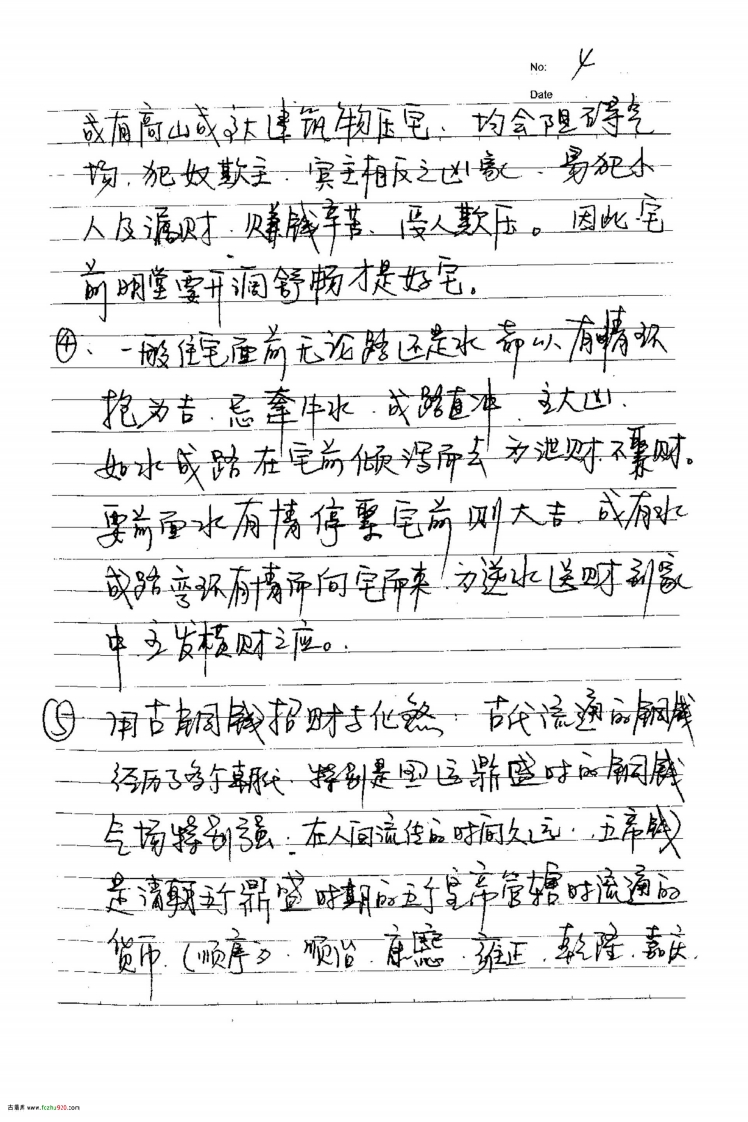 No: 4
Date
或有高山或高大建筑物压宅、均会阻碍气
场、犯奴欺主、宾主相反之凶象、易犯小
人及漏财、赚钱辛苦、受人欺压。因此宅
前明堂要开阔舒畅才是好宅。
④、一般住宅面前无论路还是水都以有情环
抱为吉、忌牵牛水、或路直冲、主大凶、
如水或路在宅前倾泻而去为泄财、不聚财。
要前面水有情停聚宅前则大吉、或有水
或路弯环有情而向宅而来、为逆水送财到家
中、主发横财之应。
⑤用古铜钱招财与化煞：古代流通的铜钱
经历了多个朝代、特别是国运鼎盛时的铜钱
气场特别强、在人间流传的时间久远、五帝钱
是清朝五个鼎盛时期的五个皇帝管辖时流通的
货币、(顺序)、顺治、康熙、雍正、乾隆、嘉庆、
古籍库 www.fozhu920.com